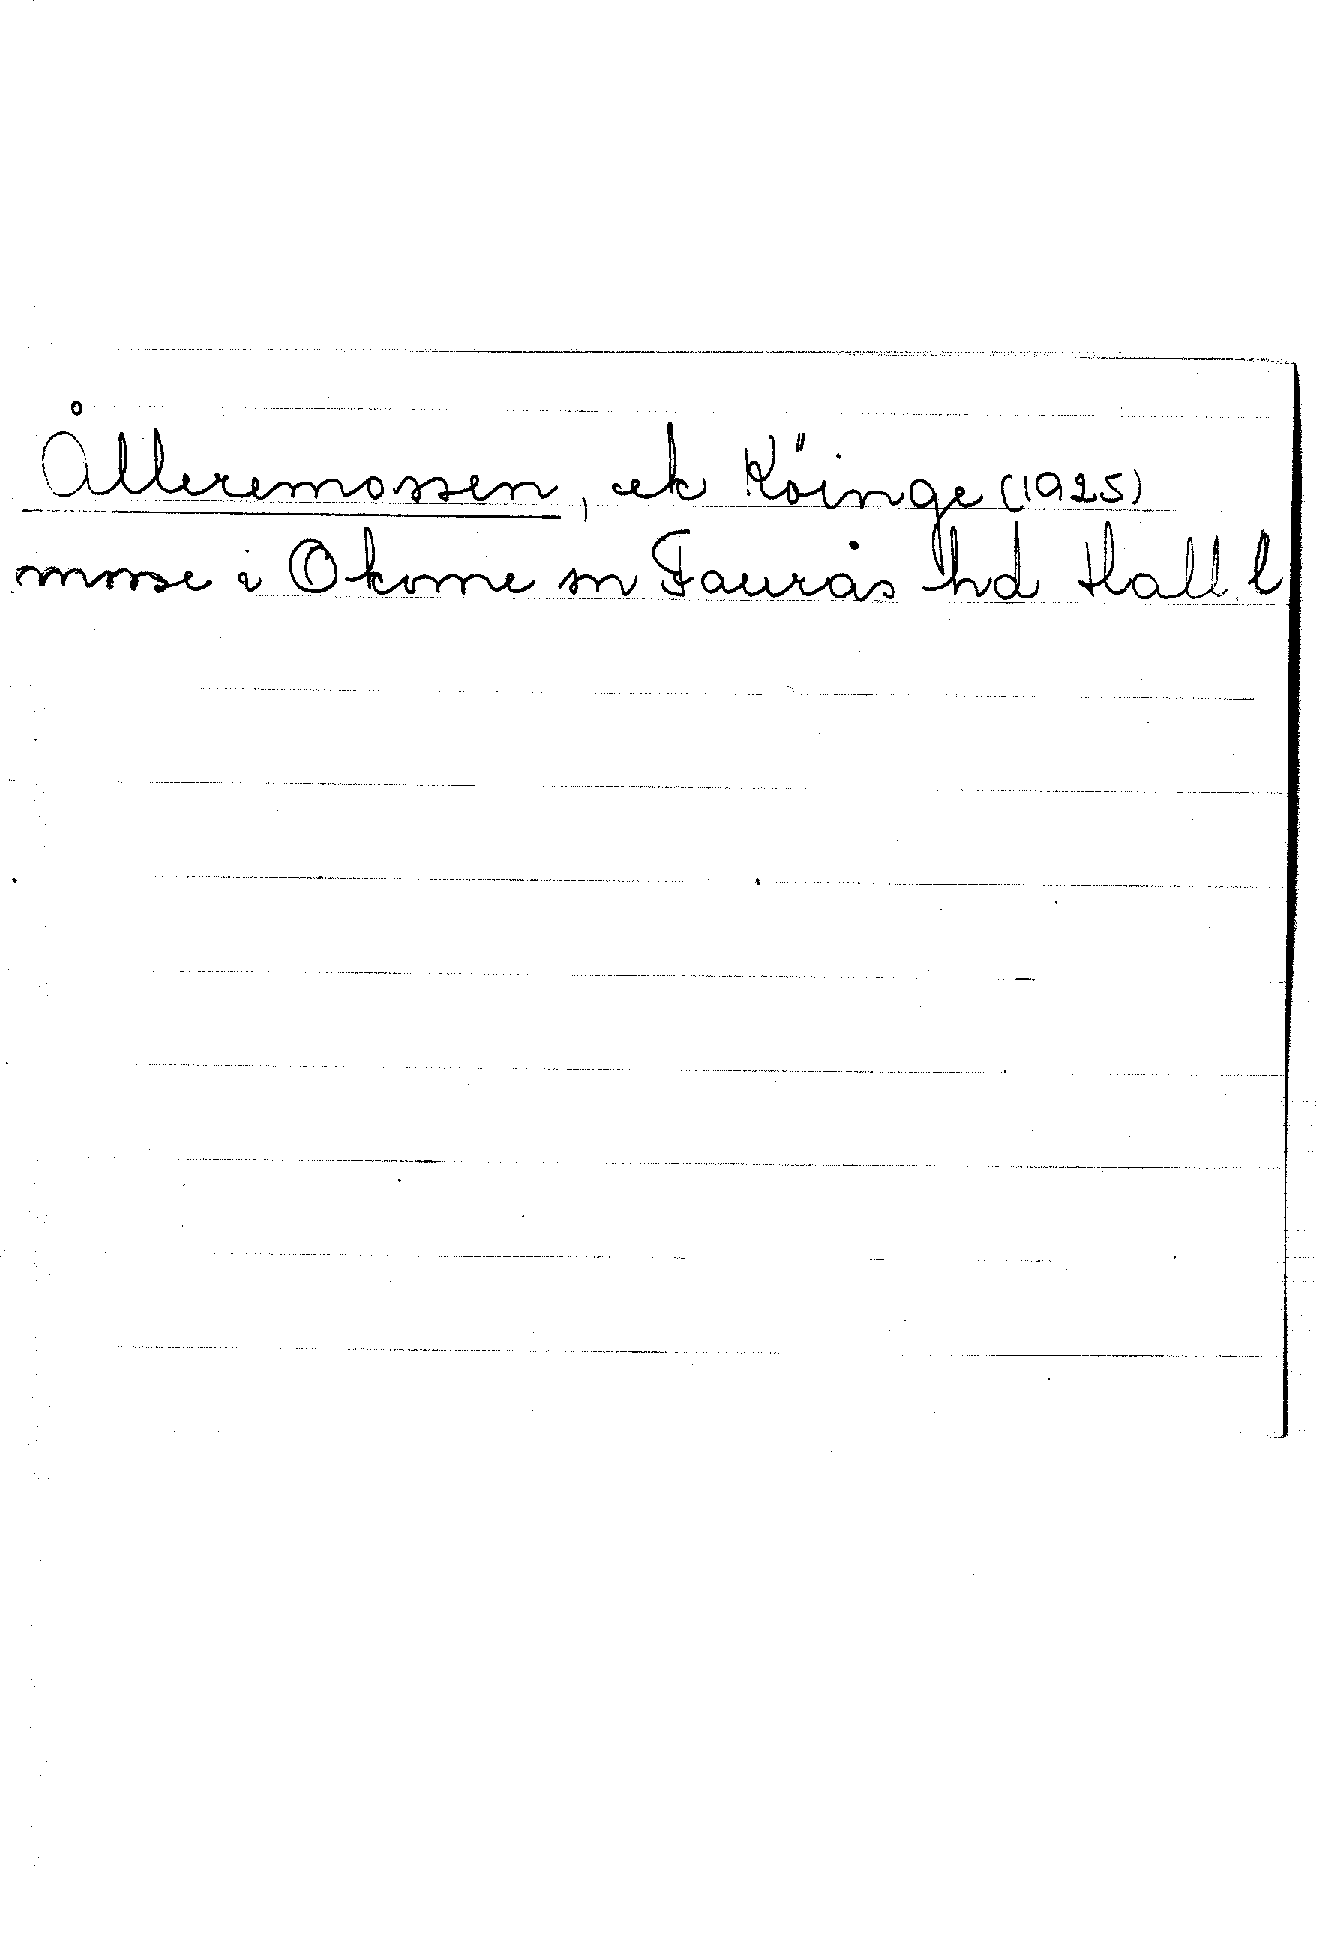 Ålleremossen, ek Köinge (1925)
mosse i Okome sn Faurås hd Hall. l